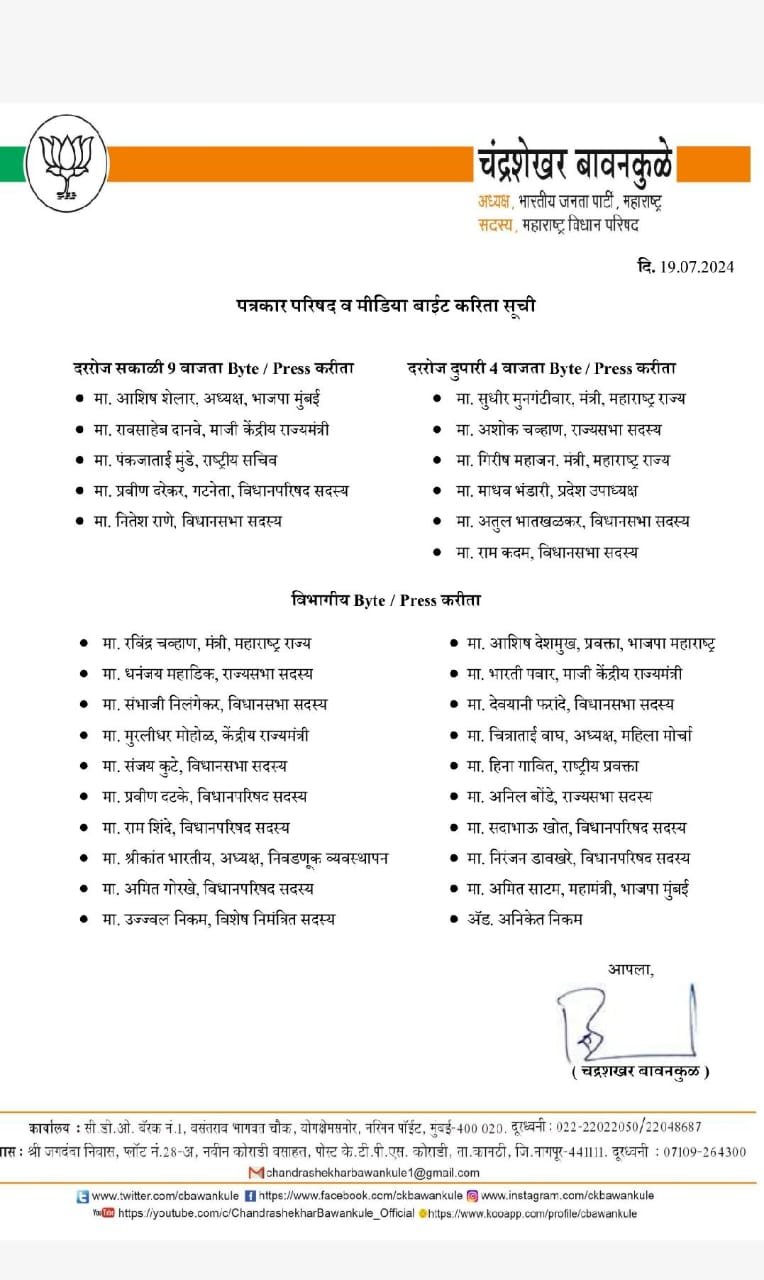 चंद्रशेखर बावनकुळे
अध्यक्ष, भारतीय जनता पार्टी, महाराष्ट्र
सदस्य, महाराष्ट्र विधान परिषद
दि. 19.07.2024
पत्रकार परिषद व मीडिया बाईट करिता सूची
दररोज सकाळी 9 वाजता Byte / Press करीता
• मा. आशिष शेलार, अध्यक्ष, भाजपा मुंबई
• मा. रावसाहेब दानवे, माजी केंद्रीय राज्यमंत्री
• मा. पंकजाताई मुंडे, राष्ट्रीय सचिव
• मा. प्रवीण दरेकर, गटनेता, विधानपरिषद सदस्य
• मा. नितेश राणे, विधानसभा सदस्य
दररोज दुपारी 4 वाजता Byte / Press करीता
• मा. सुधीर मुनगंटीवार, मंत्री, महाराष्ट्र राज्य
• मा. अशोक चव्हाण, राज्यसभा सदस्य
• मा. गिरीष महाजन, मंत्री, महाराष्ट्र राज्य
• मा. माधव भंडारी, प्रदेश उपाध्यक्ष
• मा. अतुल भातखळकर, विधानसभा सदस्य
• मा. राम कदम, विधानसभा सदस्य
विभागीय Byte / Press करीता
• मा. रविंद्र चव्हाण, मंत्री, महाराष्ट्र राज्य
• मा. धनंजय महाडिक, राज्यसभा सदस्य
• मा. संभाजी निलंगेकर, विधानसभा सदस्य
• मा. मुरलीधर मोहोळ, केंद्रीय राज्यमंत्री
• मा. संजय कुटे, विधानसभा सदस्य
• मा. प्रवीण दटके, विधानपरिषद सदस्य
• मा. राम शिंदे, विधानपरिषद सदस्य
• मा. श्रीकांत भारतीय, अध्यक्ष, निवडणूक व्यवस्थापन
• मा. अमित गोरखे, विधानपरिषद सदस्य
• मा. उज्ज्वल निकम, विशेष निमंत्रित सदस्य
• मा. आशिष देशमुख, प्रवक्ता, भाजपा महाराष्ट्र
• मा. भारती पवार, माजी केंद्रीय राज्यमंत्री
• मा. देवयानी फरांदे, विधानसभा सदस्य
• मा. चित्राताई वाघ, अध्यक्ष, महिला मोर्चा
• मा. हिना गावित, राष्ट्रीय प्रवक्ता
• मा. अनिल बोंडे, राज्यसभा सदस्य
• मा. सदाभाऊ खोत, विधानपरिषद सदस्य
• मा. निरंजन डावखरे, विधानपरिषद सदस्य
• मा. अमित साटम, महामंत्री, भाजपा मुंबई
• ॲड. अनिकेत निकम
आपला,
( चंद्रशेखर बावनकुळे )
कार्यालय : सी.डी.ओ. बॅरक नं.1, वसंतराव भागवत चौक, योगक्षेमसमोर, नरिमन पॉईट, मुंबई-400 020. दूरध्वनी : 022-22022050/22048687
ास : श्री जगदंबा निवास, प्लॉट नं.28-अ, नवीन कोराडी वसाहत, पोस्ट के.टी.पी.एस. कोराडी, ता.कामठी, जि.नागपूर-441111. दूरध्वनी : 07109-264300
chandrashekharbawankule1@gmail.com
www.twitter.com/cbawankule https://www.facebook.com/ckbawankule www.instagram.com/ckbawankule
YouTube https://youtube.com/c/ChandrashekharBawankule_Official https://www.kooapp.com/profile/cbawankule